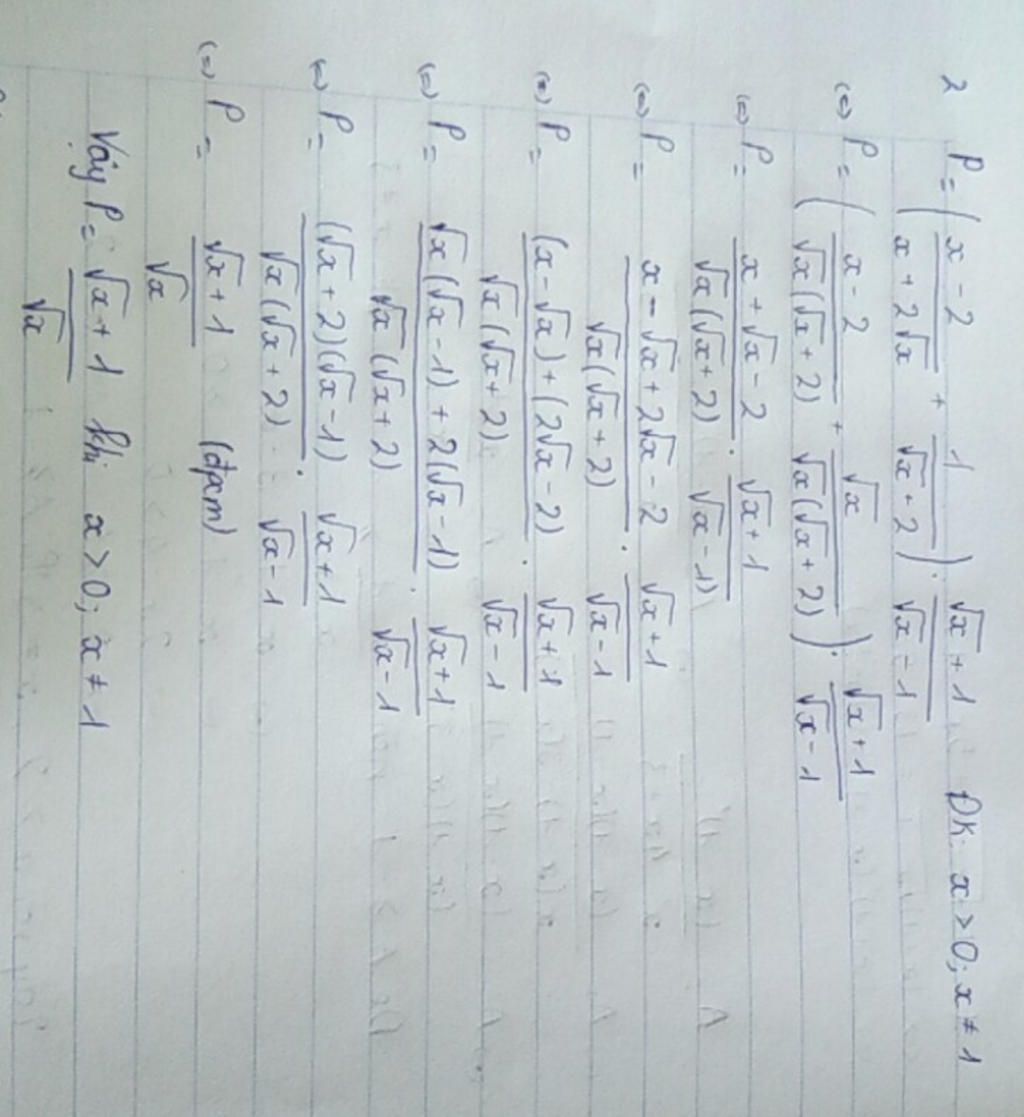 2 P = ( (x - 2)/(x + 2√x) + 1/(√x + 2) ) . (√x + 1)/(√x - 1) ĐK: x > 0; x ≠ 1
(=) P = ( (x - 2)/(√x(√x + 2)) + √x/(√x(√x + 2)) ) . (√x + 1)/(√x - 1)
(=) P = (x + √x - 2)/(√x(√x + 2)) . (√x + 1)/(√x - 1)
(=) P = (x - √x + 2√x - 2)/(√x(√x + 2)) . (√x + 1)/(√x - 1)
(=) P = ((x - √x) + (2√x - 2))/(√x(√x + 2)) . (√x + 1)/(√x - 1)
(=) P = (√x(√x - 1) + 2(√x - 1))/(√x(√x + 2)) . (√x + 1)/(√x - 1)
(=) P = ((√x + 2)(√x - 1))/(√x(√x + 2)) . (√x + 1)/(√x - 1)
(=) P = (√x + 1)/√x (đpcm)
Vậy P = (√x + 1)/√x khi x > 0; x ≠ 1